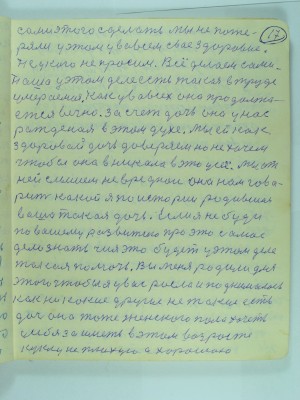 сами этого сделать мы не поте-
ряли у этому вовсем свое здоровие.
Не у кого не просим. Всё делаем сами.
Наша у этом деле есть такая в труде
умерая. Как у вовсех она продолжа-
ется вечно. За счет дочь она у нас
рожденая в этом духе. Мы ей как
здоровой дочь доверяем но не хочем
чтобы она вникала в это усё. Мы от
ней слышем не вредной она нам гова-
рит какой я по истории родивша
ваша такая дочь. Если я не буду
по вашему развитею про это самае
дело знать чия это будет у этом деле
такая помочь. Вы меня родили для
этого чтобы я у вас росла и поднималась
как никокие другие не такие есть
доч она тоже женского пола хочеть
у себя заиметь в этом возрасте
куклу не плохую а хорошою
17